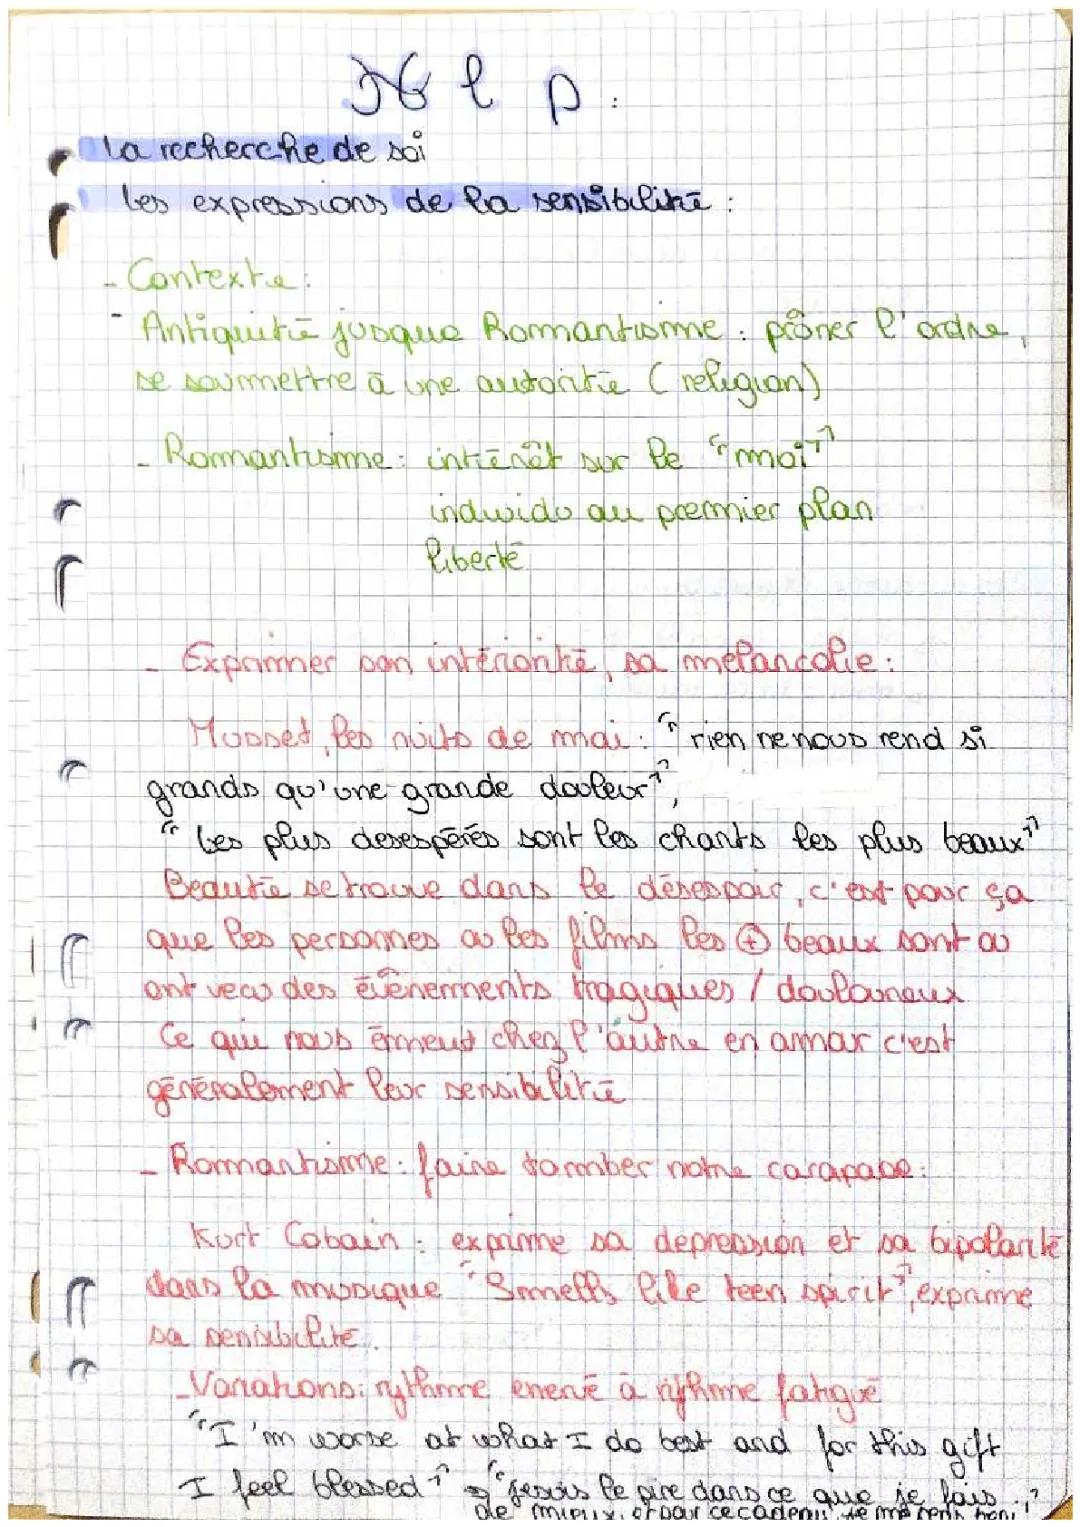 Hlp :
La recherche de soi
Les expressions de la sensibilité :
- Contexte :
- Antiquité jusque Romantisme : prôner l'ordre,
se soumettre à une autorité (religion)
- Romantisme : intérêt sur le "moi"
individu au premier plan
liberté
- Exprimer son intériorité, sa mélancolie :
Musset, les nuits de mai : "rien ne nous rend si
grands qu'une grande douleur",
"Les plus desespérés sont les chants les plus beaux"
Beauté se trouve dans le désespoir, c'est pour ça
que les personnes ou les films les ⊕ beaux sont ou
ont vecu des évènements tragiques / douloureux
Ce qui nous émeut chez l'autre en amour c'est
généralement leur sensibilité
- Romantisme : faire tomber notre carapace :
Kurt Cobain : exprime sa depression et sa bipolarité
dans la musique "Smells like teen spirit", exprime
sa sensibilité.
- Variations : rythme enervé à rythme fatigué
"I'm worse at what I do best and for this gift
I feel blessed" → "je suis le pire dans ce que je fais
de mieux, et pour ce cadeau je me sens béni"